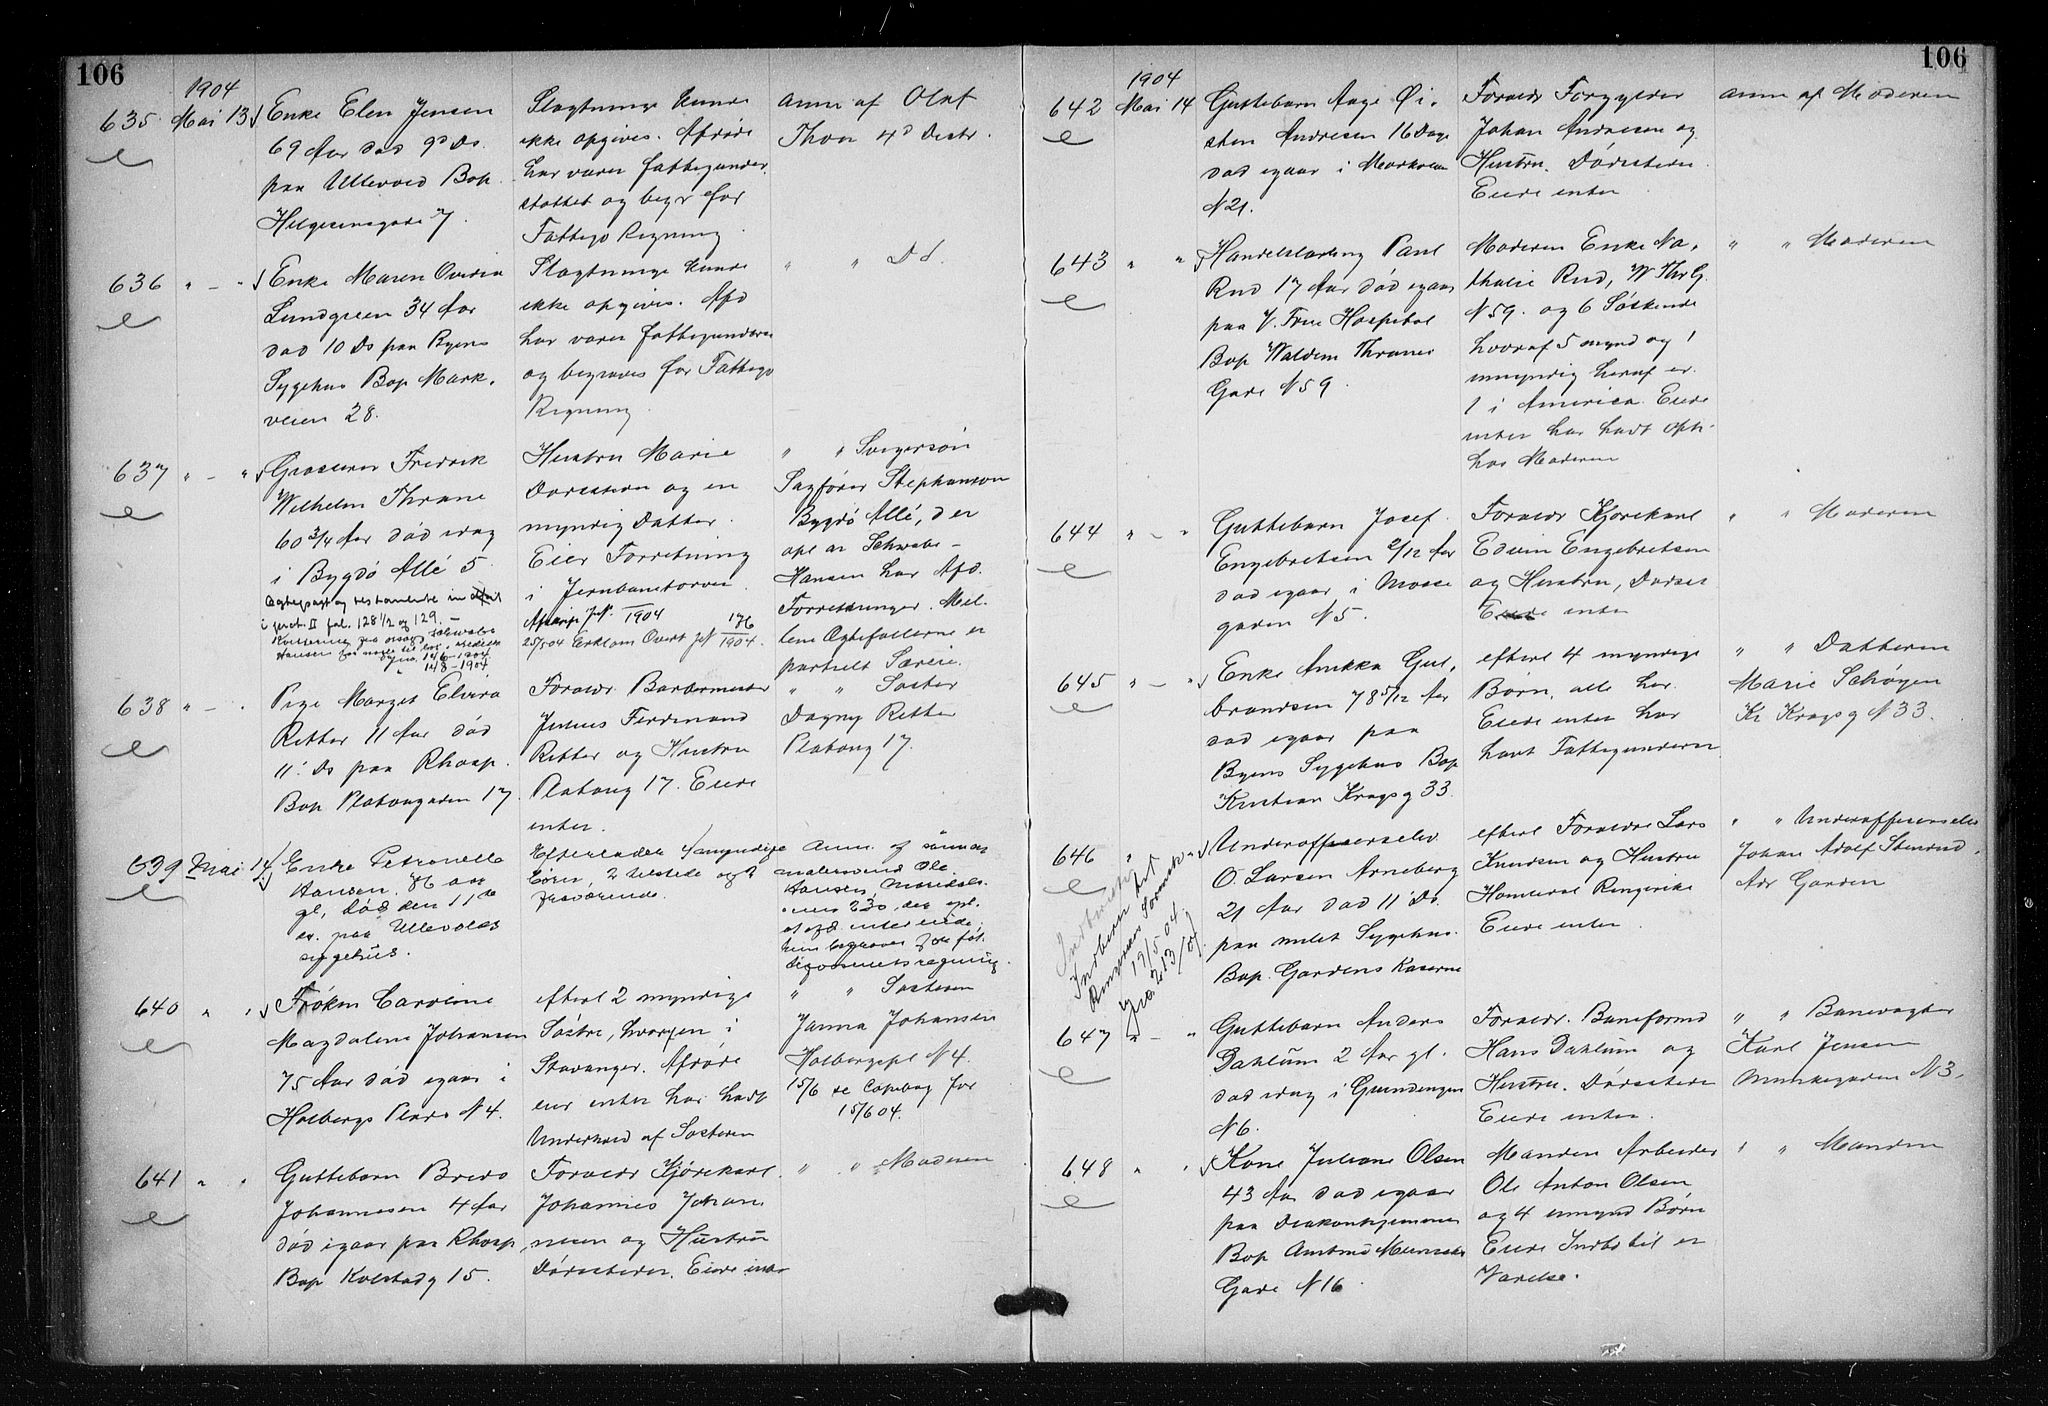 106
1904
635 Mai 13 Enke Elen Jensen
69 Aar død 9d Ds.
paa Ullevold Bop.
Helgesensgade 7.
Slægtninge kunde
ikke opgives. Afdøde
har været fattigunder-
støttet og begr for
Fattigv Regning
anm af Olaf
Thon 4d Distr.
636 " - " Enke Maren Ovedia
Lundgreen 34 Aar
død 10 Ds paa Byens
Sygehus Bop Mark-
veien 28.
Slægtninge kunde
ikke opgives. Afd
har været fattigunderst
og begraves for Fattigv
Regning
" " D d.
637 " - " Grosserer Fredrik
Wilhelm Thrane
60 3/4 Aar død idag
i Bygdö Allé 5
i fol. 128 1/2 og 129.
14/6-1904
14/8-1904
Hustru Marie
Dødsstedn og en
myndig Datter.
Eier Forretning
i Jernbanetorvet
1904
25/5 04 Erklær Overt 1904.
" " Svigersøn
Sagfører Stephanson
Bygdö Allé, der
opl at Schwabe-
Hansen har Afd.
Forretninger. Mel-
lem Ægtefællerne er
partielt Særeie.
638 " - " Pige Margit Elvira
Ritter 11 Aar død
11' Ds paa Rhosp.
Bop Platousgaden 17
Forældr. Barbermester
Julius Ferdinand
Ritter og Hustru
Platousg 17. Eiede
intet.
" " Søster
Dagny Ritter
Platousg 17.
639 Mai 14 Enke Petronelle
Hansen, 86 aar
gl, død den 11te
ds. paa Ullevolds
sygehus.
Efterlader 4 myndige
Børn, 2 tilstede og 2
fraværende.
Anm. af sønnen
malersvend Ole
Hansen,
230, der opl.
at afd. intet eiede,
hun begraves for fat-
tigvæsenets regning.
640 " " Frøken Caroline
Magdalene Johansen
75 Aar død igaar i
Holbergs Plads N 4.
efterl 2 myndige
Søstre, hvoraf en i
Stavanger. Afdøde
eier intet har havt
Underhold af Søsteren
" " Søsteren
Janna Johansen
Holbergspl N 4.
15/6 se Copibog for
15/6 04.
641 " " Guttebarn Bredo
Johannesen 4 Aar
død igaar paa Rhosp,
Bop Kolstadg 15.
Forældr Kjörekarl
Johannes Johan-
nesen og Hustru
Dødsstedet. Eiede intet
" " Moderen
106
1904
642 Mai 14 Guttebarn Aage Øi-
sten Andresen 16 Dage
død igaar i Markveien
N 21.
Forældr Forgylder
Johan Andresen og
Hustru. Dødsstedn
Eiede intet
anm af Moderen
643 " " Handelslærling Paul
Rud 17 Aar død igaar
paa V. Frue Hospital
Bop Waldem Thranes
Gade N 59.
Moderen Enke Na-
thalie Rud, W Thr G.
N 59. og 6 Söskende
hvoraf 5 mynd og 1
umyndig heraf er
1 i America. Eiede
intet har havt oph-
hos Moderen
" " Moderen
644 " - " Guttebarn Josef
Engebretsen 2/12 Aar
død igaar i Mosse
gaden N 5.
Forældr Kjörekarl
Edvin Engebretsen
og Hustru, Dødsst
Eiede intet
" " Moderen
645 " - " Enke Anikka Gul-
brandsen 78 5/12 Aar
død igaar paa
Byens Sygehus Bop
Kristian Kragsg 33.
efterl 4 myndige
Børn, alle her.
Eiede intet har
havt Fattigunderst
" " Datteren
Marie Schøyen
Kr Kragsg N 33.
646 " " Underofficerselev
O. Larsen Arneberg
21 Aar død 11' Ds.
paa milit Sygehus.
Bop. Gardens Kaserne
efterl Forældre Lars
Knudsen og Hustru
Ringerike
Eiede intet
" " Underofficerselev
Johan Adolf Stensrud,
Adr Garden
Indberettet
Ringerikes Sorenskr
17/5 04.
Jno. 213/04
647 " - " Guttebarn Anders
Dahlum 2 Aar gl.
død idag i Grundingen
N 6.
Forældr. Baneformd
Hans Dahlum og
Hustru. Dødsstedn
Eiede intet.
" " Banevogter
Karl Jensen
Munkegaden N 3.
648 " " Kone Juliane Olsen
43 Aar død igaar
paa Diakonhjemmet
Bop Amtmd Meinichs
Gade N 16
Manden Arbeider
Ole Anton Olsen
og 4 umynd Børn
Eiede Indbo til er
Værelse.
" " Manden